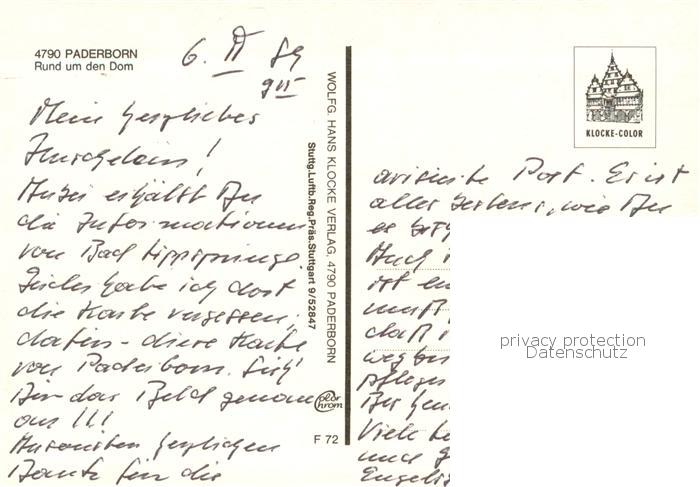 4790 PADERBORN
Rund um den Dom
6. II 89
Mein herzliches
Anbei erhältst Du
die Informationen
von Bad Lippspringe.
Leider habe ich dort
die Karte vergessen;
dafür diese Karte
von Paderborn. Sieh'
Dir das Bild genau
an !!!
Ansonsten herzlichen
Dank für die
WOLFG. HANS KLOCKE VERLAG, 4790 PADERBORN
Stuttg.Luftb.Reg.Präs.Stuttgart 9/52847
Color chrom
F 72
KLOCKE-COLOR
avisierte Post. Es ist
alles bestens, wie Du
es
Auch
ist
muß
daß
pflege
Viele
und
privacy protection
Datenschutz